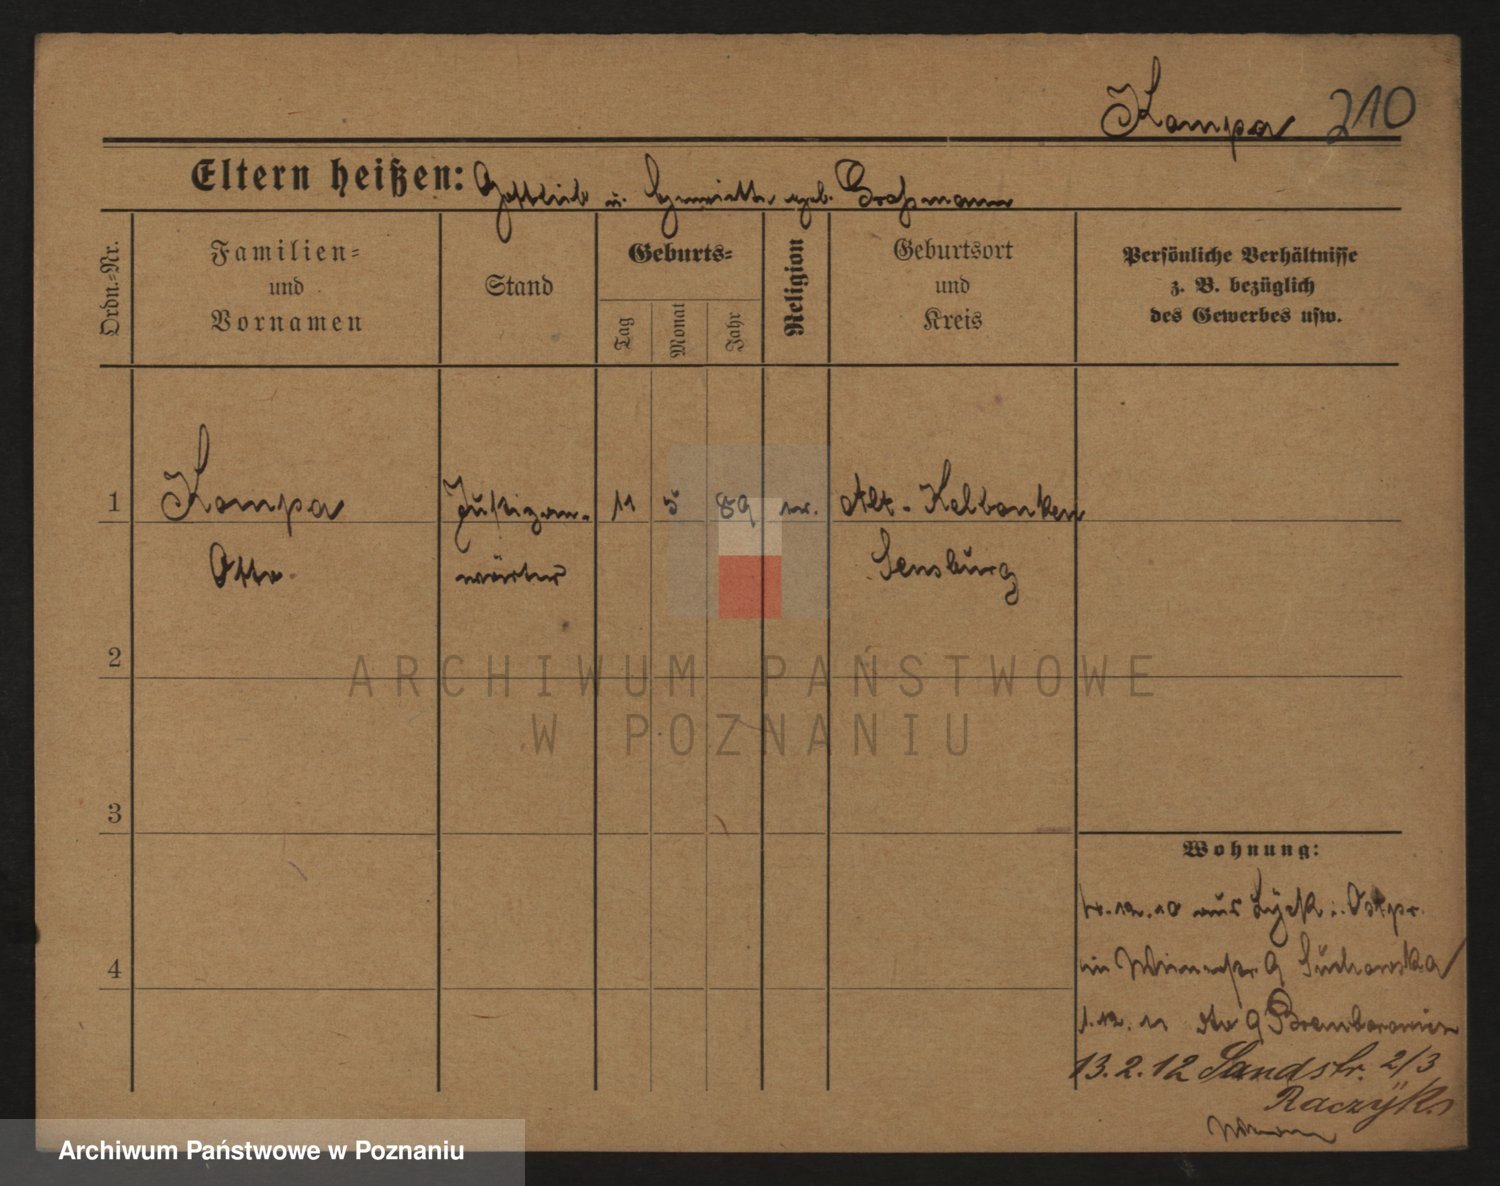 Kompa 210
Eltern heißen: Gottlieb u. Henriette geb. Großmann
Ordn.-Nr.
Familien-
und
Vornamen
Stand
Geburts-
Tag
Monat
Jahr
Religion
Geburtsort
und
Kreis
Persönliche Verhältnisse
z. B. bezüglich
des Gewerbes usw.
1 Kompa Justizan- 11 5 89 Alt-Kelbonken
Otto wärter Sensburg
2
3
4
Wohnung:
12.10 aus Lyck i. Ostpr.
Suchowska
1.12.11 9
13.2.12 Sandstr. 2/3
ARCHIWUM PAŃSTWOWE
W POZNANIU
Archiwum Państwowe w Poznaniu